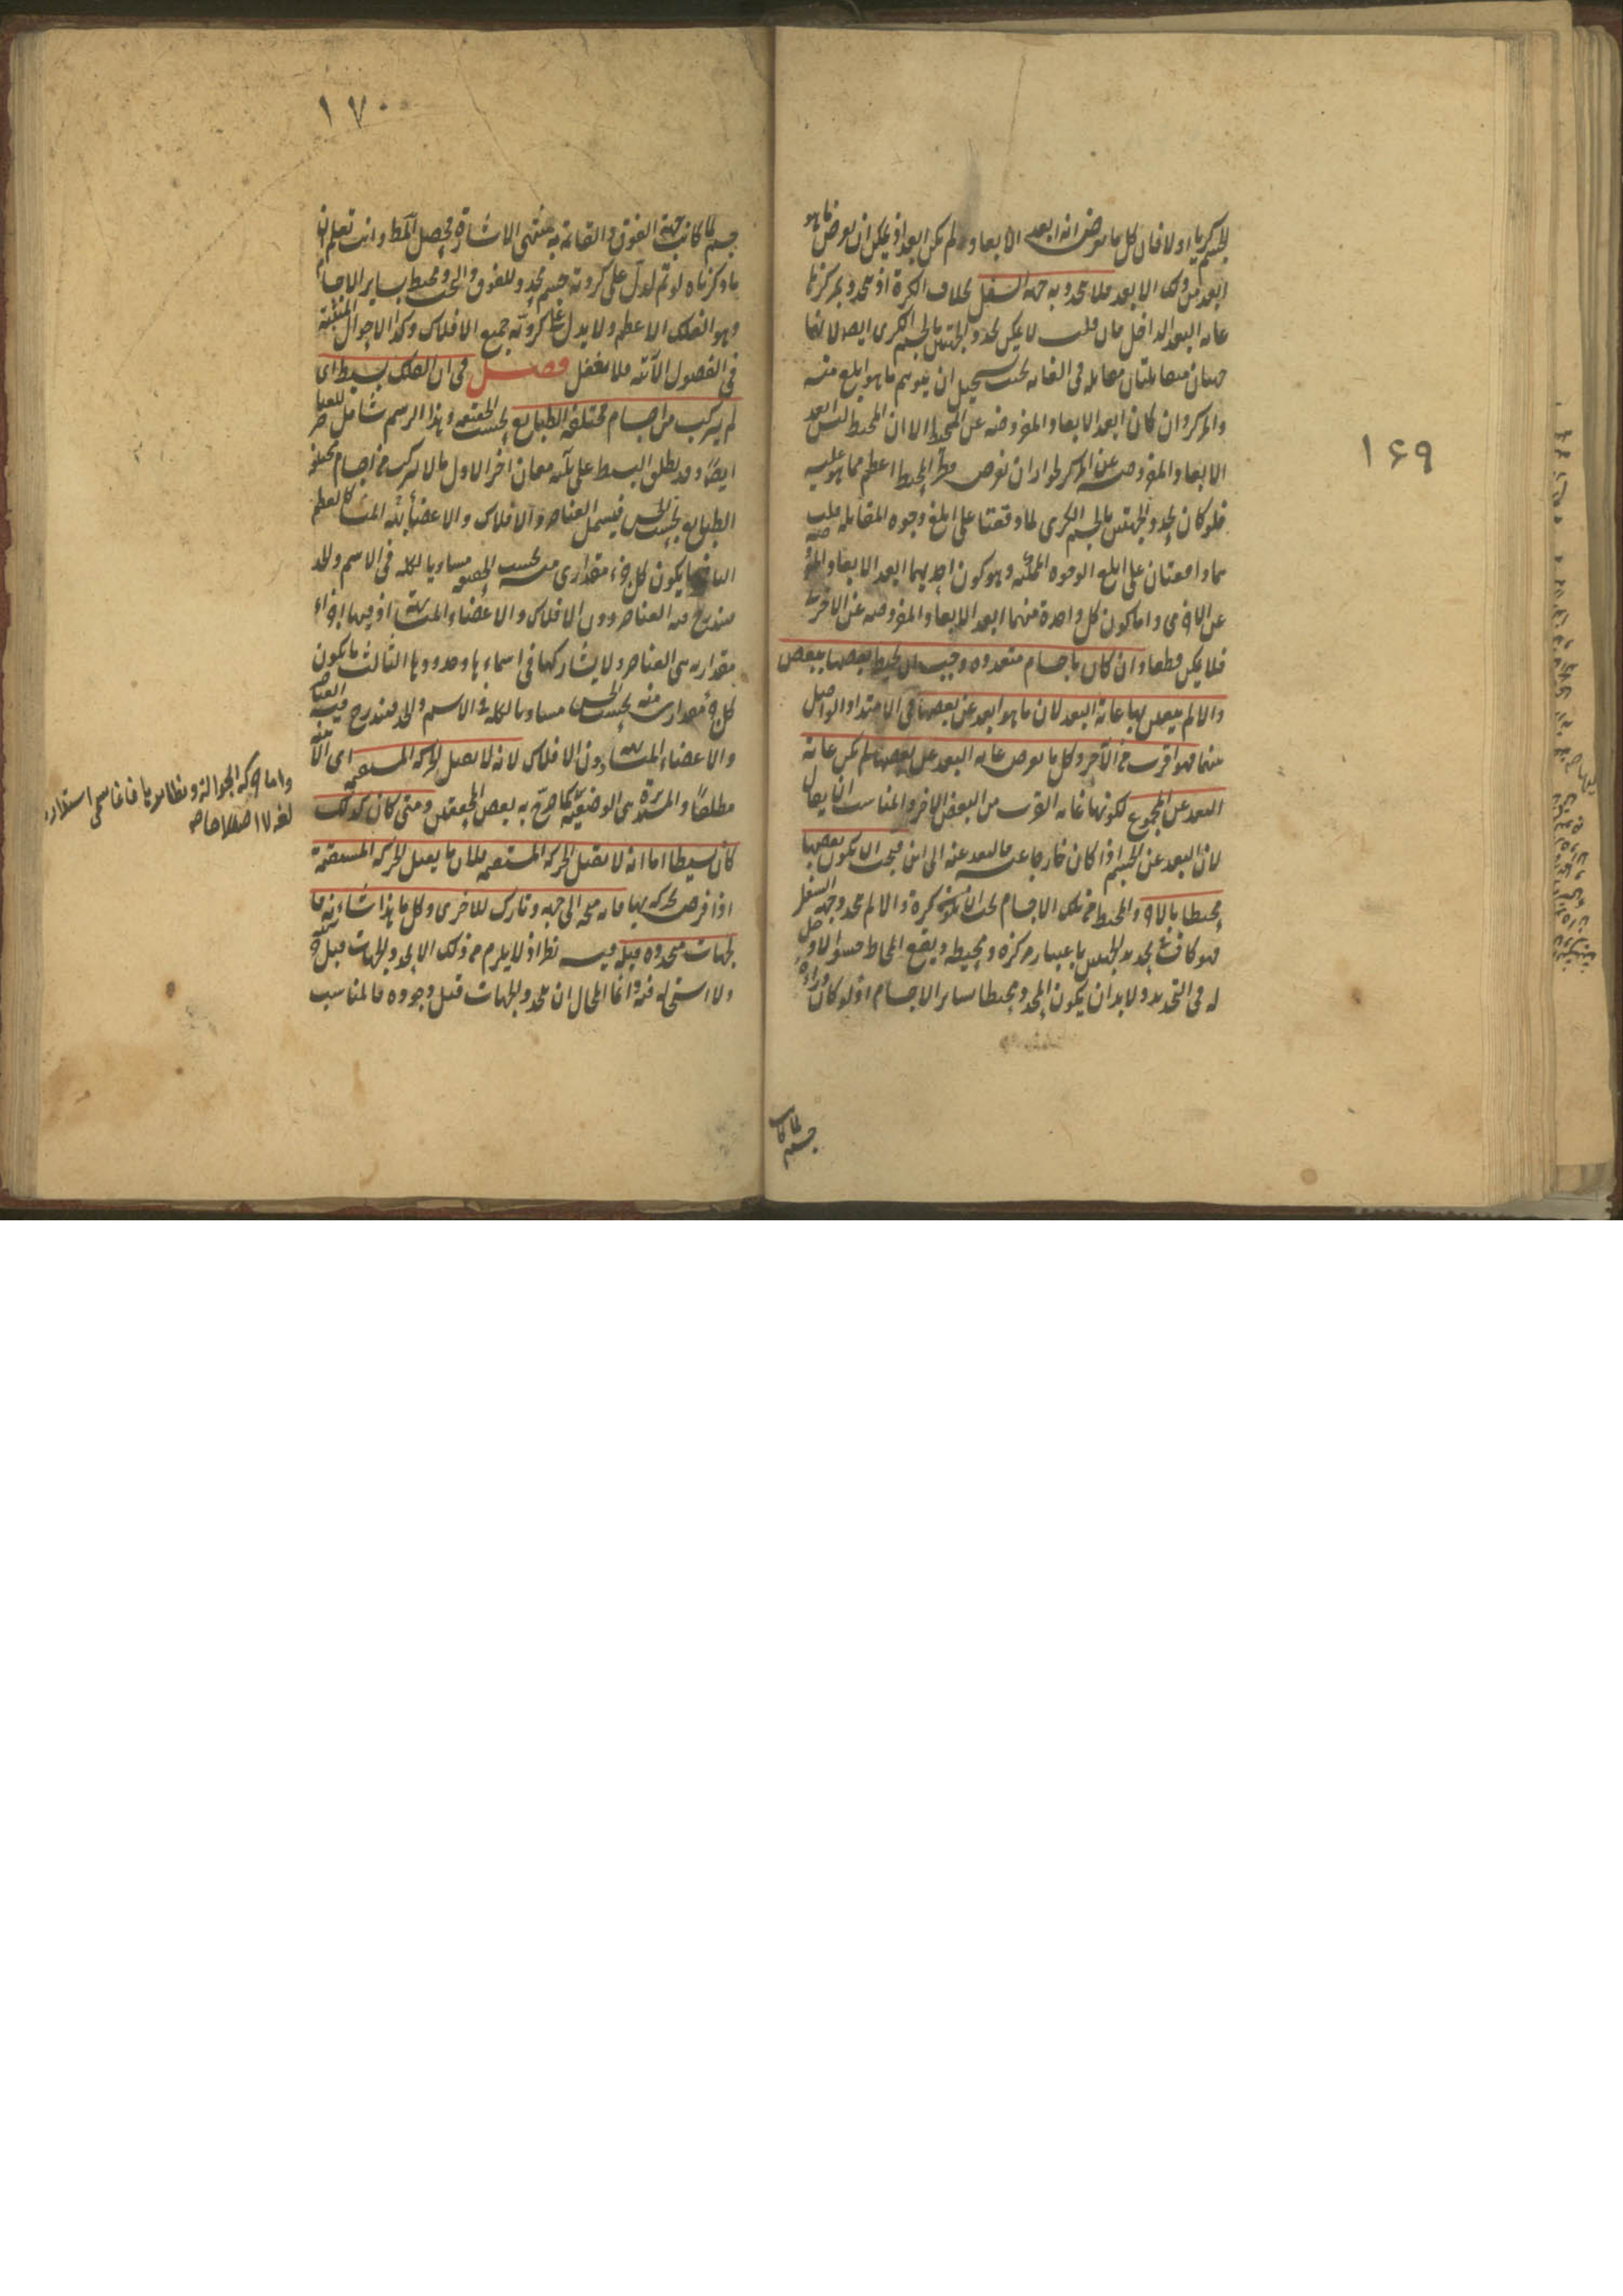 ١۶٩
لجسم كريا اولا فان كل ما يفرض انه ابعد الابعاد لم يكن ابعد اذ يمكن ان يفرض ما هو
ابعد من ذلك الابعد فلا تتحدد به جهة السفل بخلاف الكرة اذ تتحدد بمركزها
غاية البعد الداخل فان قلت لا يمكن تحدد الجهتين بالجسم الكرى ايضا لانهما
جهتان متقابلتان مقابلة فى الغاية بحيث يستحيل ان يتوهم ما هو ابلغ منه
والمركز وان كان ابعد الابعاد المفروضة عن المحيط الا ان المحيط ليس ابعد
الابعاد المفروضة عن المركز لجواز ان نفرض قطر المحيط اعظم مما هو عليه
فلو كان تحدد الجهتين بالجسم الكرى لما وقعتا على ابلغ وجوه المقابلة قلت
هما واقعتان على ابلغ الوجوه الممكنة وهو كون احديهما ابعد الابعاد المفروضة
عن الاخرى واما كون كل واحدة منهما ابعد الابعاد المفروضة عن الاخرى
فلا يمكن قطعا وان كان باجسام متعددة وجب ان يحيط بعضها ببعض
والا لم يتعين بها غاية البعد لان ما هو ابعد عن بعضها فى الامتداد الواصل
بينهما فهو اقرب من الآخر وكل ما يفرض غاية البعد عن بعضها لم يكن غاية
البعد عن المجموع لكونها غاية القرب من البعض الاخر والمناسب ان يقال
لان البعد عن الجسم اذا كان خارجا عنه فالبعد عنه الى اين فيجب ان يكون بعضها
محيطا بالاخر والمحيط من تلك الاجسام يجب ان يكون كرة والا لم تحدد جهة السفل
فهو كاف فى تحديد الجهتين باعتبار مركزه ومحيطه ويقع المحاط حشوا لا دخل
له فى التحديد ولا بد ان يكون المحدد محيطا بسائر الاجسام اذ لو كان وراءه
جسم لما كانت
١٧٠
جسم لما كانت جهة الفوق القائمة به منتهى الاشارة فحصل المط وانت تعلم ان
ما ذكرناه لو تم لدل على كروية جسم محدد للفوق والتحت ومحيط بساير الاجسام
وهو الفلك الاعظم ولا يدل على كروية جميع الافلاك وكذا الاحوال المثبتة
فى الفصول الآتية فلا تغفل فصل فى ان الفلك بسيط اى
لم يتركب من اجسام مختلفة الطبايع بحسب الحقيقة وهذا الرسم شامل للعناصر
ايضا وقد يطلق البسيط على ثلثة معان اخر الاول ما لا يتركب من اجسام مختلفة
الطبايع بحسب الحس فيشمل العناصر والافلاك والاعضاء المتشابهة كالعظم
الثانى ما يكون كل جزء مقدارى منه بحسب الحقيقة مساويا لكله فى الاسم والحد
فيندرج فيه العناصر دون الافلاك والاعضاء المتشابهة اذ فيها اجزاء
مقدارية هى العناصر ولا يشاركها فى اسماءها وحدودها الثالث ما يكون
كل جزء مقدارى منه بحسب الحس مساويا لكله فى الاسم والحد فيندرج فيه العناصر
والاعضاء المتشابهة دون الافلاك لانه لا يقبل الحركة المستقيمة اى الاينية
مطلقا والمستديرة هى الوضعية كما صرح به بعض المحققين ومتى كان كذلك
كان بسيطا اما انه لا يقبل الحركة المستقيمة فلان ما يقبل الحركة المستقيمة
اذا فرض تحركه بها فانه متجه الى جهة وتارك للاخرى وكل ما هذا شانه فا
لجهات متحددة قبله وفيه نظر اذ لا يلزم من ذلك الا تحدد الجهات قبل حركته
ولا استحالة فيه وانما المحال ان تتحدد الجهات قبل وجوده فالمناسب
واما حركة الجوالة ونظايرها فانما سمى استدارة
لغة لا اصطلاحا ص